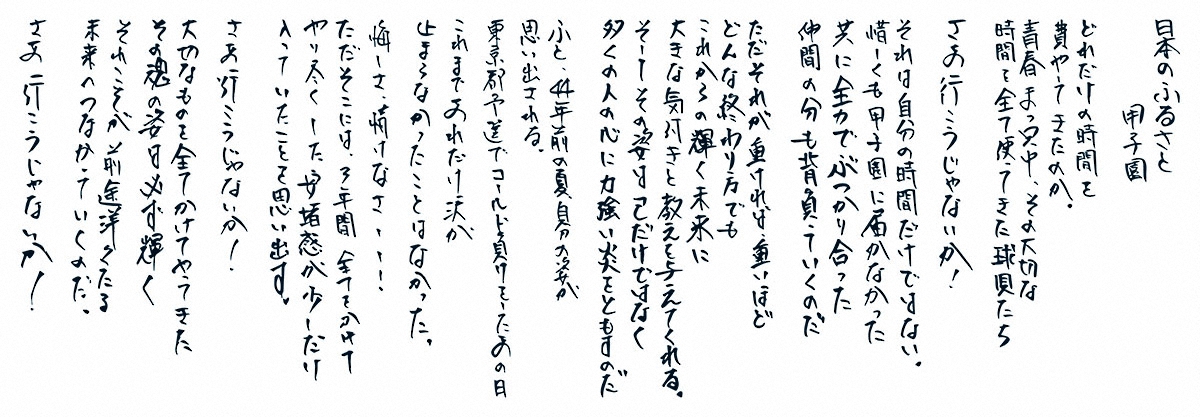 日本のふるさと
甲子園
どれだけの時間を
費やしてきたのか。
青春まっ只中、その大切な
時間を全て使ってきた球児たち
さあ行こうじゃないか！
それは自分の時間だけではない。
惜しくも甲子園に届かなかった
共に全力でぶつかり合った
仲間の分も背負っていくのだ
ただそれが重ければ重いほど
どんな終わり方でも
これからの輝く未来に
大きな気付きと教えを与えてくれる。
そしてその姿は己だけではなく
多くの人の心に力強い炎をともすのだ
ふと、44年前の夏自分の姿が
思い出される。
東京都予選でコールド負けをしたあの日
これまであれだけ涙が
止まらなかったことはなかった。
悔しさ、情けなさ…！
ただそこには、3年間全てをかけて
やり尽くした安堵感が少しだけ
入っていたことを思い出す。
さあ行こうじゃないか！
大切なものを全てかけてやってきた
その魂の姿は必ず輝く
それこそが前途洋々たる
未来へつながっていくのだ。
さあ行こうじゃないか！